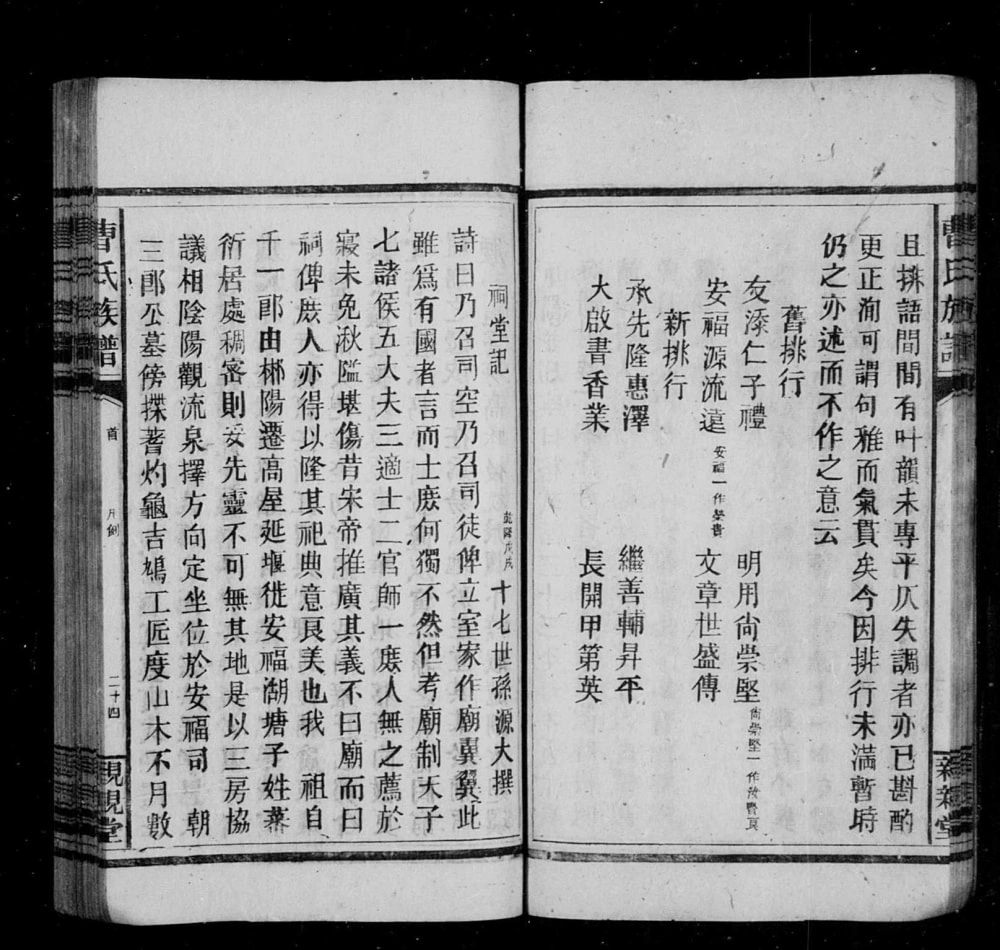 且排語間間有叶韻未專平仄失調者亦已斟酌
更正洵可謂句雅而氣貫矣今因排行未滿暫時
仍之亦述而不作之意云
舊排行
友添仁子禮 明用尚崇堅 尚崇堅一作汝賢良
安福源流遠 安福一作榮貴 文章世盛傳
新排行
承先隆惠澤 繼善輔昇平
大啟書香業 長開甲第英
祠堂記 乾隆戊戌 十七世孫源大撰
詩曰乃召司空乃召司徒俾立室家作廟翼翼此
雖為有國者言而士庶何獨不然但考廟制天子
七諸侯五大夫三適士二官師一庶人無之薦於
寢未免湫隘堪傷昔宋帝推廣其義不曰廟而曰
祠俾庶人亦得以隆其祀典意良美也我 祖自
千一郎由梛陽遷高屋延堰徙安福湖塘子姓蕃
衍居處稠密則妥先靈不可無其地是以三房協
議相陰陽觀流泉擇方向定坐位於安福司 朝
三郎公墓傍揲蓍灼龜吉鳩工匠度山木不月數
曹氏族譜 首 二十四 親親堂
曹氏族譜 親親堂